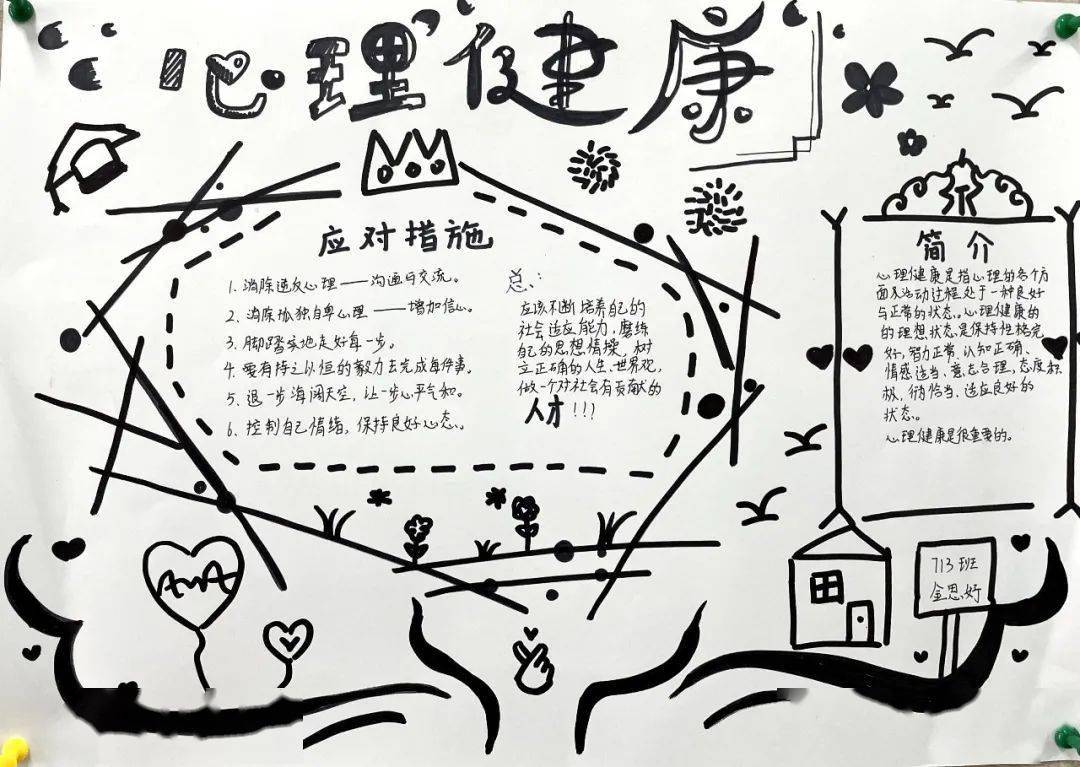 心理健康
应对措施
1. 消除逆反心理——沟通与交流。
2. 消除孤独自卑心理——增加信心。
3. 脚踏实地走好每一步。
4. 要有持之以恒的毅力去完成每件事。
5. 退一步海阔天空，让一步心平气和。
6. 控制自己情绪，保持良好心态。
总：
应该不断培养自己的
社会适应能力，磨练
自己的思想情操，树
立正确的人生、世界观，
做一个对社会有贡献的
人才!!!
简介
心理健康是指心理的各个方
面及活动过程处于一种良好
与正常的状态。心理健康的
的理想状态是保持性格完
好，智力正常、认知正确、
情感适当、意志合理，态度积
极，行为恰当、适应良好的
状态。
心理健康是很重要的。
713班
金思妤